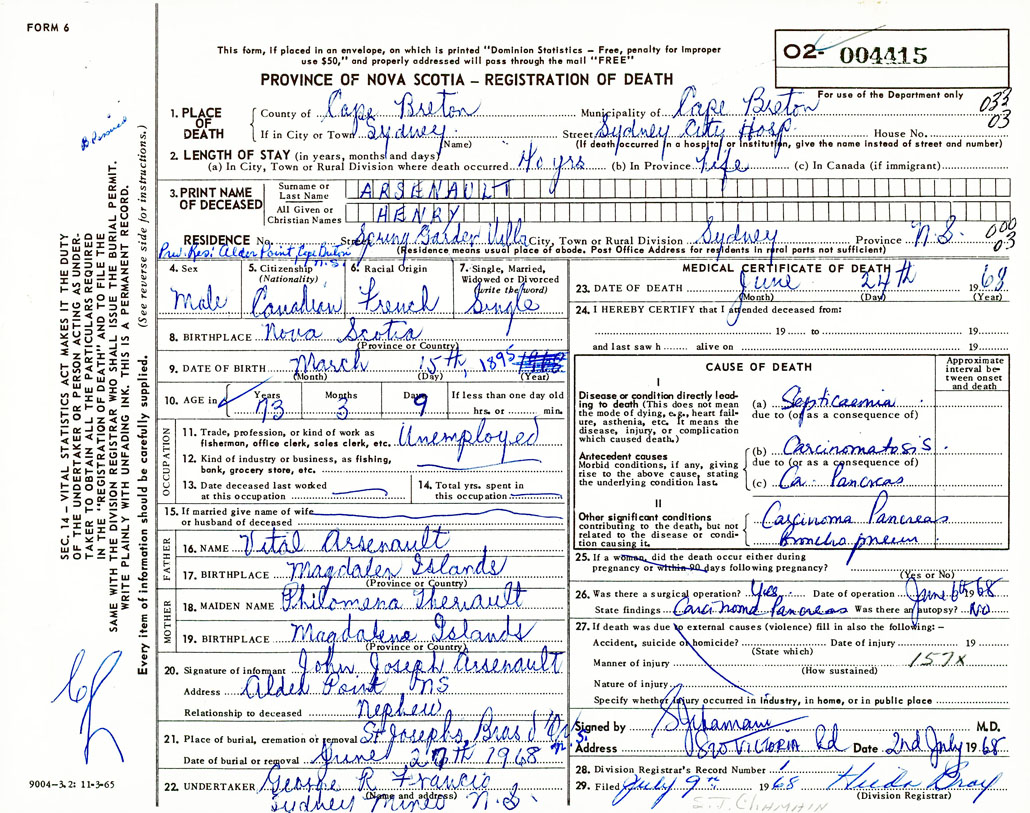 FORM 6
This form, if placed in an envelope, on which is printed "Dominion Statistics – Free, penalty for improper
use $50," and properly addressed will pass through the mail "FREE"
O2- 004415
PROVINCE OF NOVA SCOTIA – REGISTRATION OF DEATH
For use of the Department only
033
03
1. PLACE OF DEATH
County of Cape Breton Municipality of Cape Breton
If in City or Town Sydney Street Sydney City Hosp. House No.
(Name) (If death occurred in a hospital or institution, give the name instead of street and number)
2. LENGTH OF STAY (in years, months and days)
(a) In City, Town or Rural Division where death occurred 40 yrs (b) In Province Life (c) In Canada (if immigrant)
3. PRINT NAME OF DECEASED
Surname or Last Name ARSENAULT
All Given or Christian Names HENRY
RESIDENCE No. Street Spring Garden Villa City, Town or Rural Division Sydney Province N.S. 000
03
Prev. Res: Alder Point Cape Breton N.S. (Residence means usual place of abode. Post Office Address for residents in rural parts not sufficient)
4. Sex
Male
5. Citizenship
(Nationality)
Canadian
6. Racial Origin
French
7. Single, Married,
Widowed or Divorced
(write the word)
Single
8. BIRTHPLACE Nova Scotia
(Province or Country)
9. DATE OF BIRTH March 15th, 1895
(Month) (Day) (Year)
10. AGE in Years Months Days If less than one day old
73 3 9 hrs. or min.
OCCUPATION
11. Trade, profession, or kind of work as
fishermen, office clerk, sales clerk, etc. Unemployed
12. Kind of industry or business, as fishing,
bank, grocery store, etc.
13. Date deceased last worked
at this occupation
14. Total yrs. spent in
this occupation
15. If married give name of wife
or husband of deceased
FATHER
16. NAME Vital Arsenault
17. BIRTHPLACE Magdalen Islands
(Province or Country)
MOTHER
18. MAIDEN NAME Philomena Theriault
19. BIRTHPLACE Magdalene Islands
(Province or Country)
20. Signature of informant John Joseph Arsenault
Address Alder Point NS
Relationship to deceased Nephew
21. Place of burial, cremation or removal St Josephs, Bras d'Or N.S.
Date of burial or removal June 27th 1968
22. UNDERTAKER George R Francis
(Name and address)
Sydney Mines N.S.
MEDICAL CERTIFICATE OF DEATH
23. DATE OF DEATH June 24th 1968
(Month) (Day) (Year)
24. I HEREBY CERTIFY that I attended deceased from:
19 to 19
and last saw h alive on 19
CAUSE OF DEATH
Approximate
interval be-
tween onset
and death
I
Disease or condition directly lead-
ing to death (This does not mean
the mode of dying, e.g., heart fail-
ure, asthenia, etc. It means the
disease, injury, or complication
which caused death.)
(a) Septicaemia
due to (or as a consequence of)
Antecedent causes
Morbid conditions, if any, giving
rise to the above cause, stating
the underlying condition last.
(b) Carcinomatosis
due to (or as a consequence of)
(c) Ca. Pancreas
II
Other significant conditions
contributing to the death, but not
related to the disease or condi-
tion causing it.
Carcinoma Pancreas
Broncho pneum
25. If a woman, did the death occur either during
pregnancy or within 90 days following pregnancy?
(Yes or No)
26. Was there a surgical operation? Yes Date of operation June 6th 1968
State findings Carcinoma Pancreas Was there an autopsy? No
27. If death was due to external causes (violence) fill in also the following: –
Accident, suicide or homicide? Date of injury 19
(State which)
Manner of injury 157X
(How sustained)
Nature of injury
Specify whether injury occurred in industry, in home, or in public place
Signed by M.D.
Address 820 VICTORIA Rd Date 2nd July 1968
28. Division Registrar's Record Number
29. Filed July 9th 1968 Hilda Gray
(Division Registrar)
S.J. CHAMAIN
SEC. 14 – VITAL STATISTICS ACT MAKES IT THE DUTY
OF THE UNDERTAKER OR PERSON ACTING AS UNDER-
TAKER TO OBTAIN ALL THE PARTICULARS REQUIRED
IN THE "REGISTRATION OF DEATH" AND TO FILE THE
SAME WITH THE DIVISION REGISTRAR WHO SHALL ISSUE THE BURIAL PERMIT.
WRITE PLAINLY WITH UNFADING INK. THIS IS A PERMANENT RECORD.
Every item of information should be carefully supplied. (See reverse side for instructions.)
9004–3.2: 11-3-65